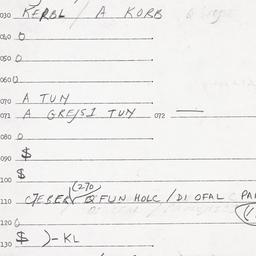 030 KERBL / A KORB
040 O
050 O
060 O
070 A TUN
071 A GREJSI TUN 072 —
080 O
090 $
100 $
(270)
110 CJEBER Q FUN HOLC / DI OFAL
120 O
130 $ )-KL